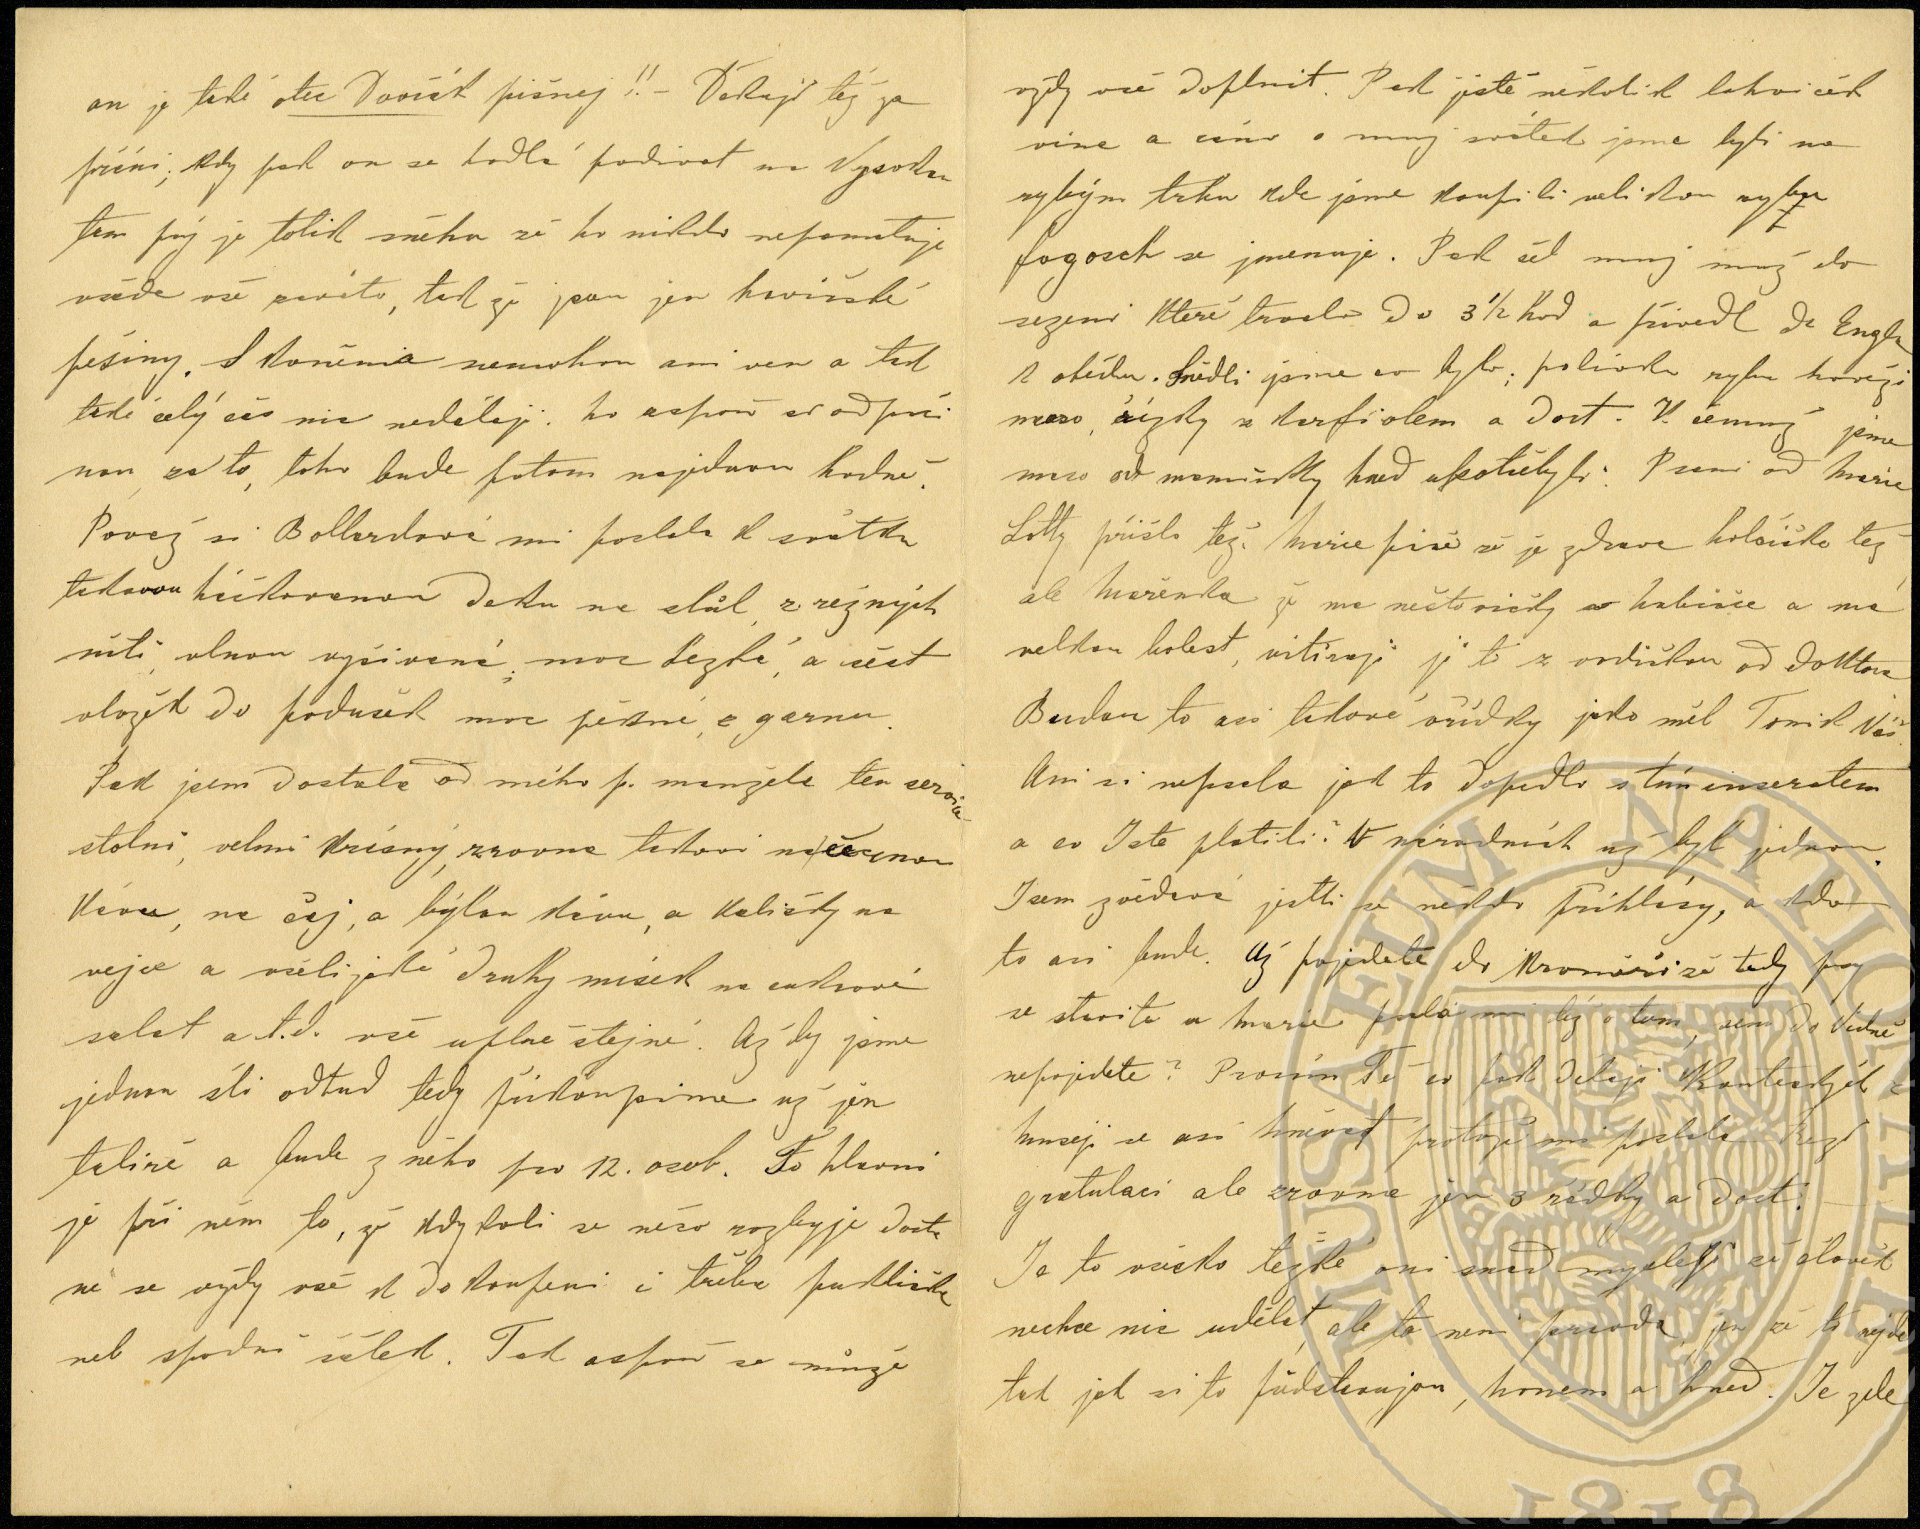 on je také otec Dvořák pišnej!! – Děkuji též za
přání; kdy pak on se hodlá podivat na Vysokou
tam prý je tolik sněhu že ho nikdo nepamatuje
všude vše zaváto, tak že jsou jen havířské
pěšiny. S koněma nemohou ani ven a tak
také celý čas nic nedělají. ho aspoň si odpoči
nou, za to, toho bude potom najednou hodně.
Považ si Bollardová mi poslala k svátku
takovou háčkovanou deku na stůl, z režných
nití, vlnou vyšívaná; moc hezká, a šest
vložek do podušek moc pěkné, z garnu.
Pak jsem dostala od mého p. manžela ten servis
stolní, velmi krásný, zrovna takovi na černou
kávu, na čaj, a býlou kávu, a kalíšky na
vejce a všelijaké druhy misek na cukroví
salat a.t.d. vše uplně stejné. Až by jsme
jednou šli odtud tedy přikoupime už jen
talíře a bude z něho pro 12. osob. To hlavní
je při něm to, že kdykoli se něco rozbyje dosta
ne se vždy vše k dokoupeni i třeba pukličke
neb spodní šálek. Tak aspoň se může
vždy vše doplnit. Pak ještě několik lahviček
vína a ráno o muj svátek jsme byli na
rybým trhu kde jsme koupili velikou rybu
fogosch se jmenuje. Pak šel muj muž do
sezení které trvalo do 3 1/2 hod a přivedl dr Engla
k obědu. Snědli jsme co bylo; polívka ryba hovězí
maso, řízky s karfiolem a dost. K čemuž jsme
maso od maminky hned upotřebyli. Psaní od Marie
Lotty přišlo též. Marie píše že je zdráva holčička též
ale Mařenka že ma neštovičky v hubičce a má
velkou bolest, vitírají jí to z vodičkou od doktora
Budou to asi takové vřídky jako měl Toník Váš.
Ani si nepsala jak to dopadlo s tím inseratem
a co Jste platili? V národních už byl jednou.
Jsem zvědavá jestli se někdo přihlásy, a kdo
to asi bude. Až pojedete do Kroměříže tedy prý
se stavíte u Marie psala mi též o tom, sem do Vídně
nepojedete? Prosím Tě co pak dělají Kouteckých z
Musejí se asi hněvat protože mi poslala Rezi
gratulaci ale zrovna jen 3 řádky a dost.
Je to všecko težké oni snad myslejí že člověk
nechce nic udělat, ale to není pravda, jen že to nejde
tak jak si to představujou, honem a hned. Je zde
MUSAEUM NATIONALE
1818